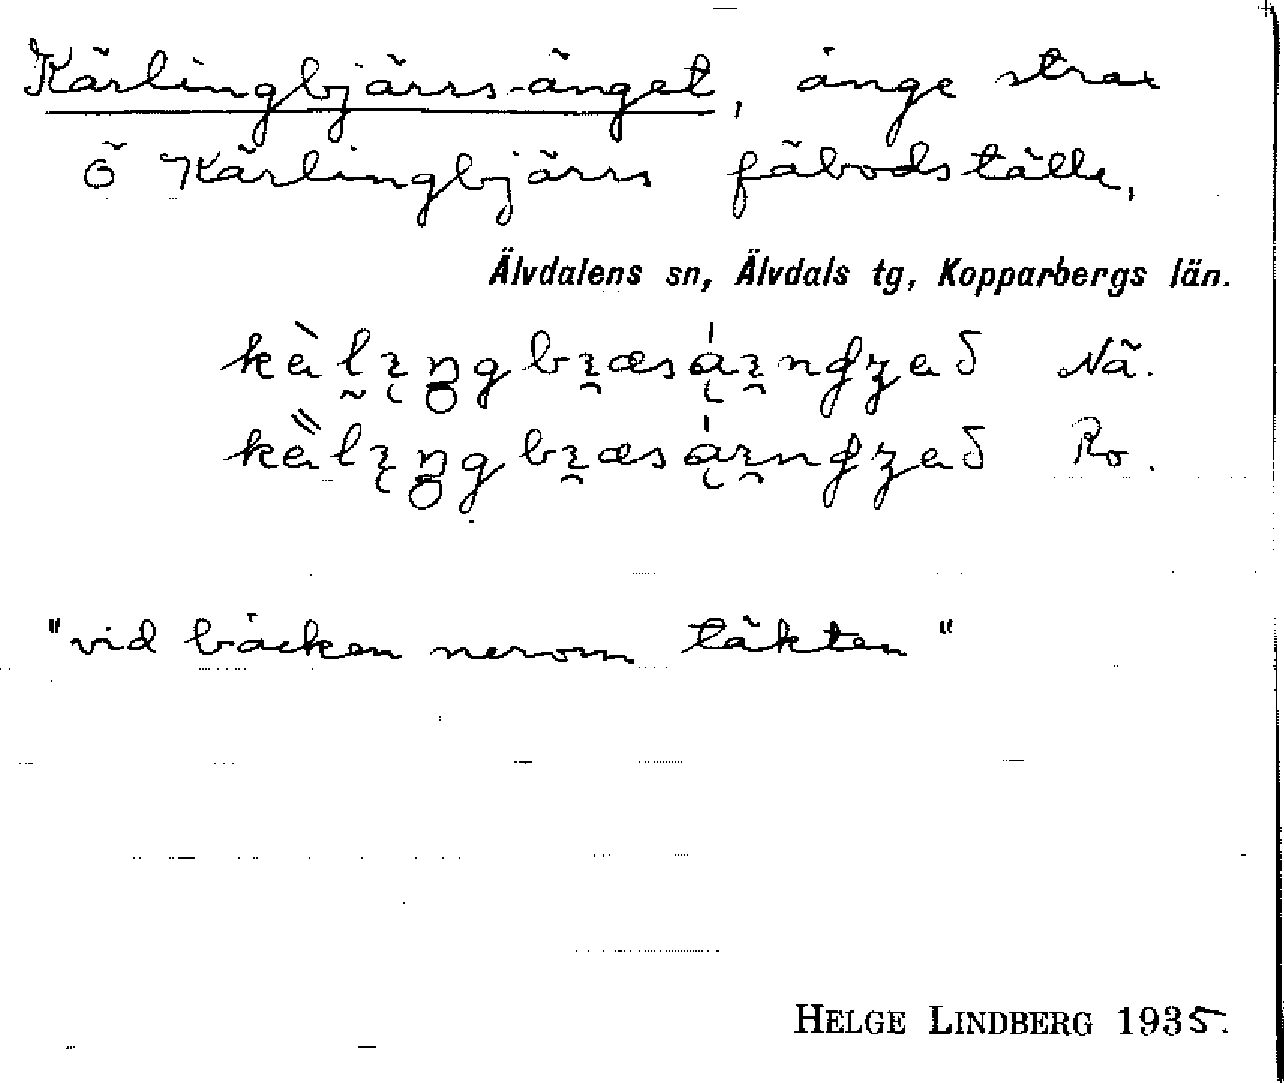 Kärlingbjärrs-änget, änge strax
ö Kärlingbjärrs fäbodställe,
Älvdalens sn, Älvdals tg, Kopparbergs län.
Nä.
Ro.
"vid bäcken nerom täkten"
HELGE LINDBERG 1935.